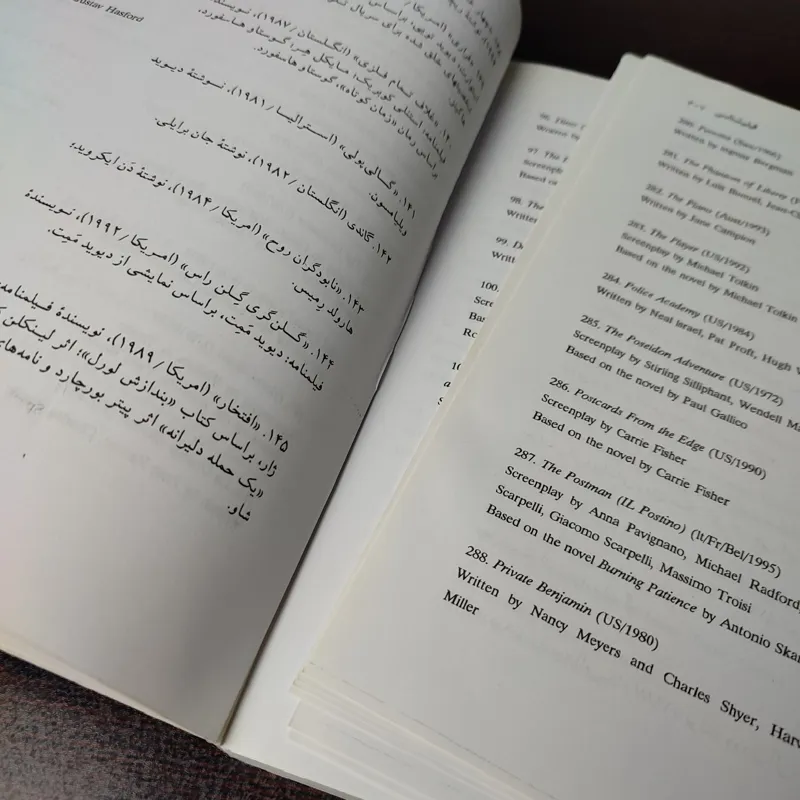 Gustav Hasford
۱۴۰. «غلاف تمام فلزی» (انگلستان/۱۹۸۷)، نویسنده
فیلمنامه: استنلی کوبریک، مایکل هر، گوستاو هاسفورد.
براساس رمان «زمان کوتاه»، گوستاو هاسفورد.
۱۴۱. «گالی پولی» (استرالیا/۱۹۸۱)، نوشتهٔ دیوید
ویلیامسون.
۱۴۲. گاندی (انگلستان/۱۹۸۲)، نوشتهٔ جان برایلی.
۱۴۳. «نابودگران روح» (امریکا/۱۹۸۴)، نوشتهٔ دَن ایکروید،
هارولد رمیس.
۱۴۴. «گلن‌گری گلن راس» (امریکا/۱۹۹۲)، نویسندهٔ
فیلمنامه: دیوید مَمِت، براساس نمایشی از دیوید مَمِت.
۱۴۵. «افتخار» (امریکا/۱۹۸۹)، نویسندهٔ فیلمنامه:
ژار، براساس کتاب «بندازش لورل»؛ اثر لینکلن
«یک حمله دلیرانه» اثر پیتر بورچارد و نامه‌های
شاو.
96.
Written
97. The
Screenplay
Based on
98. The
Written
99.
Written
100.
فیلمشناسی ۴۰۷
280. Persona (Swe/1966)
Written by Ingmar Bergman
281. The Phantom of Liberty
Written by Luis Bunuel, Jean-
282. The Piano (Aust/1993)
Written by Jane Campion
283. The Player (US/1992)
Screenplay by Michael Tolkin
Based on the novel by Michael Tolkin
284. Police Academy (US/1984)
Written by Neal Israel, Pat Proft, Hugh
285. The Poseidon Adventure (US/1972)
Screenplay by Stirling Silliphant, Wendell
Based on the novel by Paul Gallico
286. Postcards From the Edge (US/1990)
Screenplay by Carrie Fisher
Based on the novel by Carrie Fisher
287. The Postman (IL Postino) (It/Fr/Bel/1995)
Screenplay by Anna Pavignano, Michael Radford,
Scarpelli, Giacomo Scarpelli, Massimo Troisi
Based on the novel Burning Patience by Antonio
288. Private Benjamin (US/1980)
Written by Nancy Meyers and Charles Shyer,
Miller